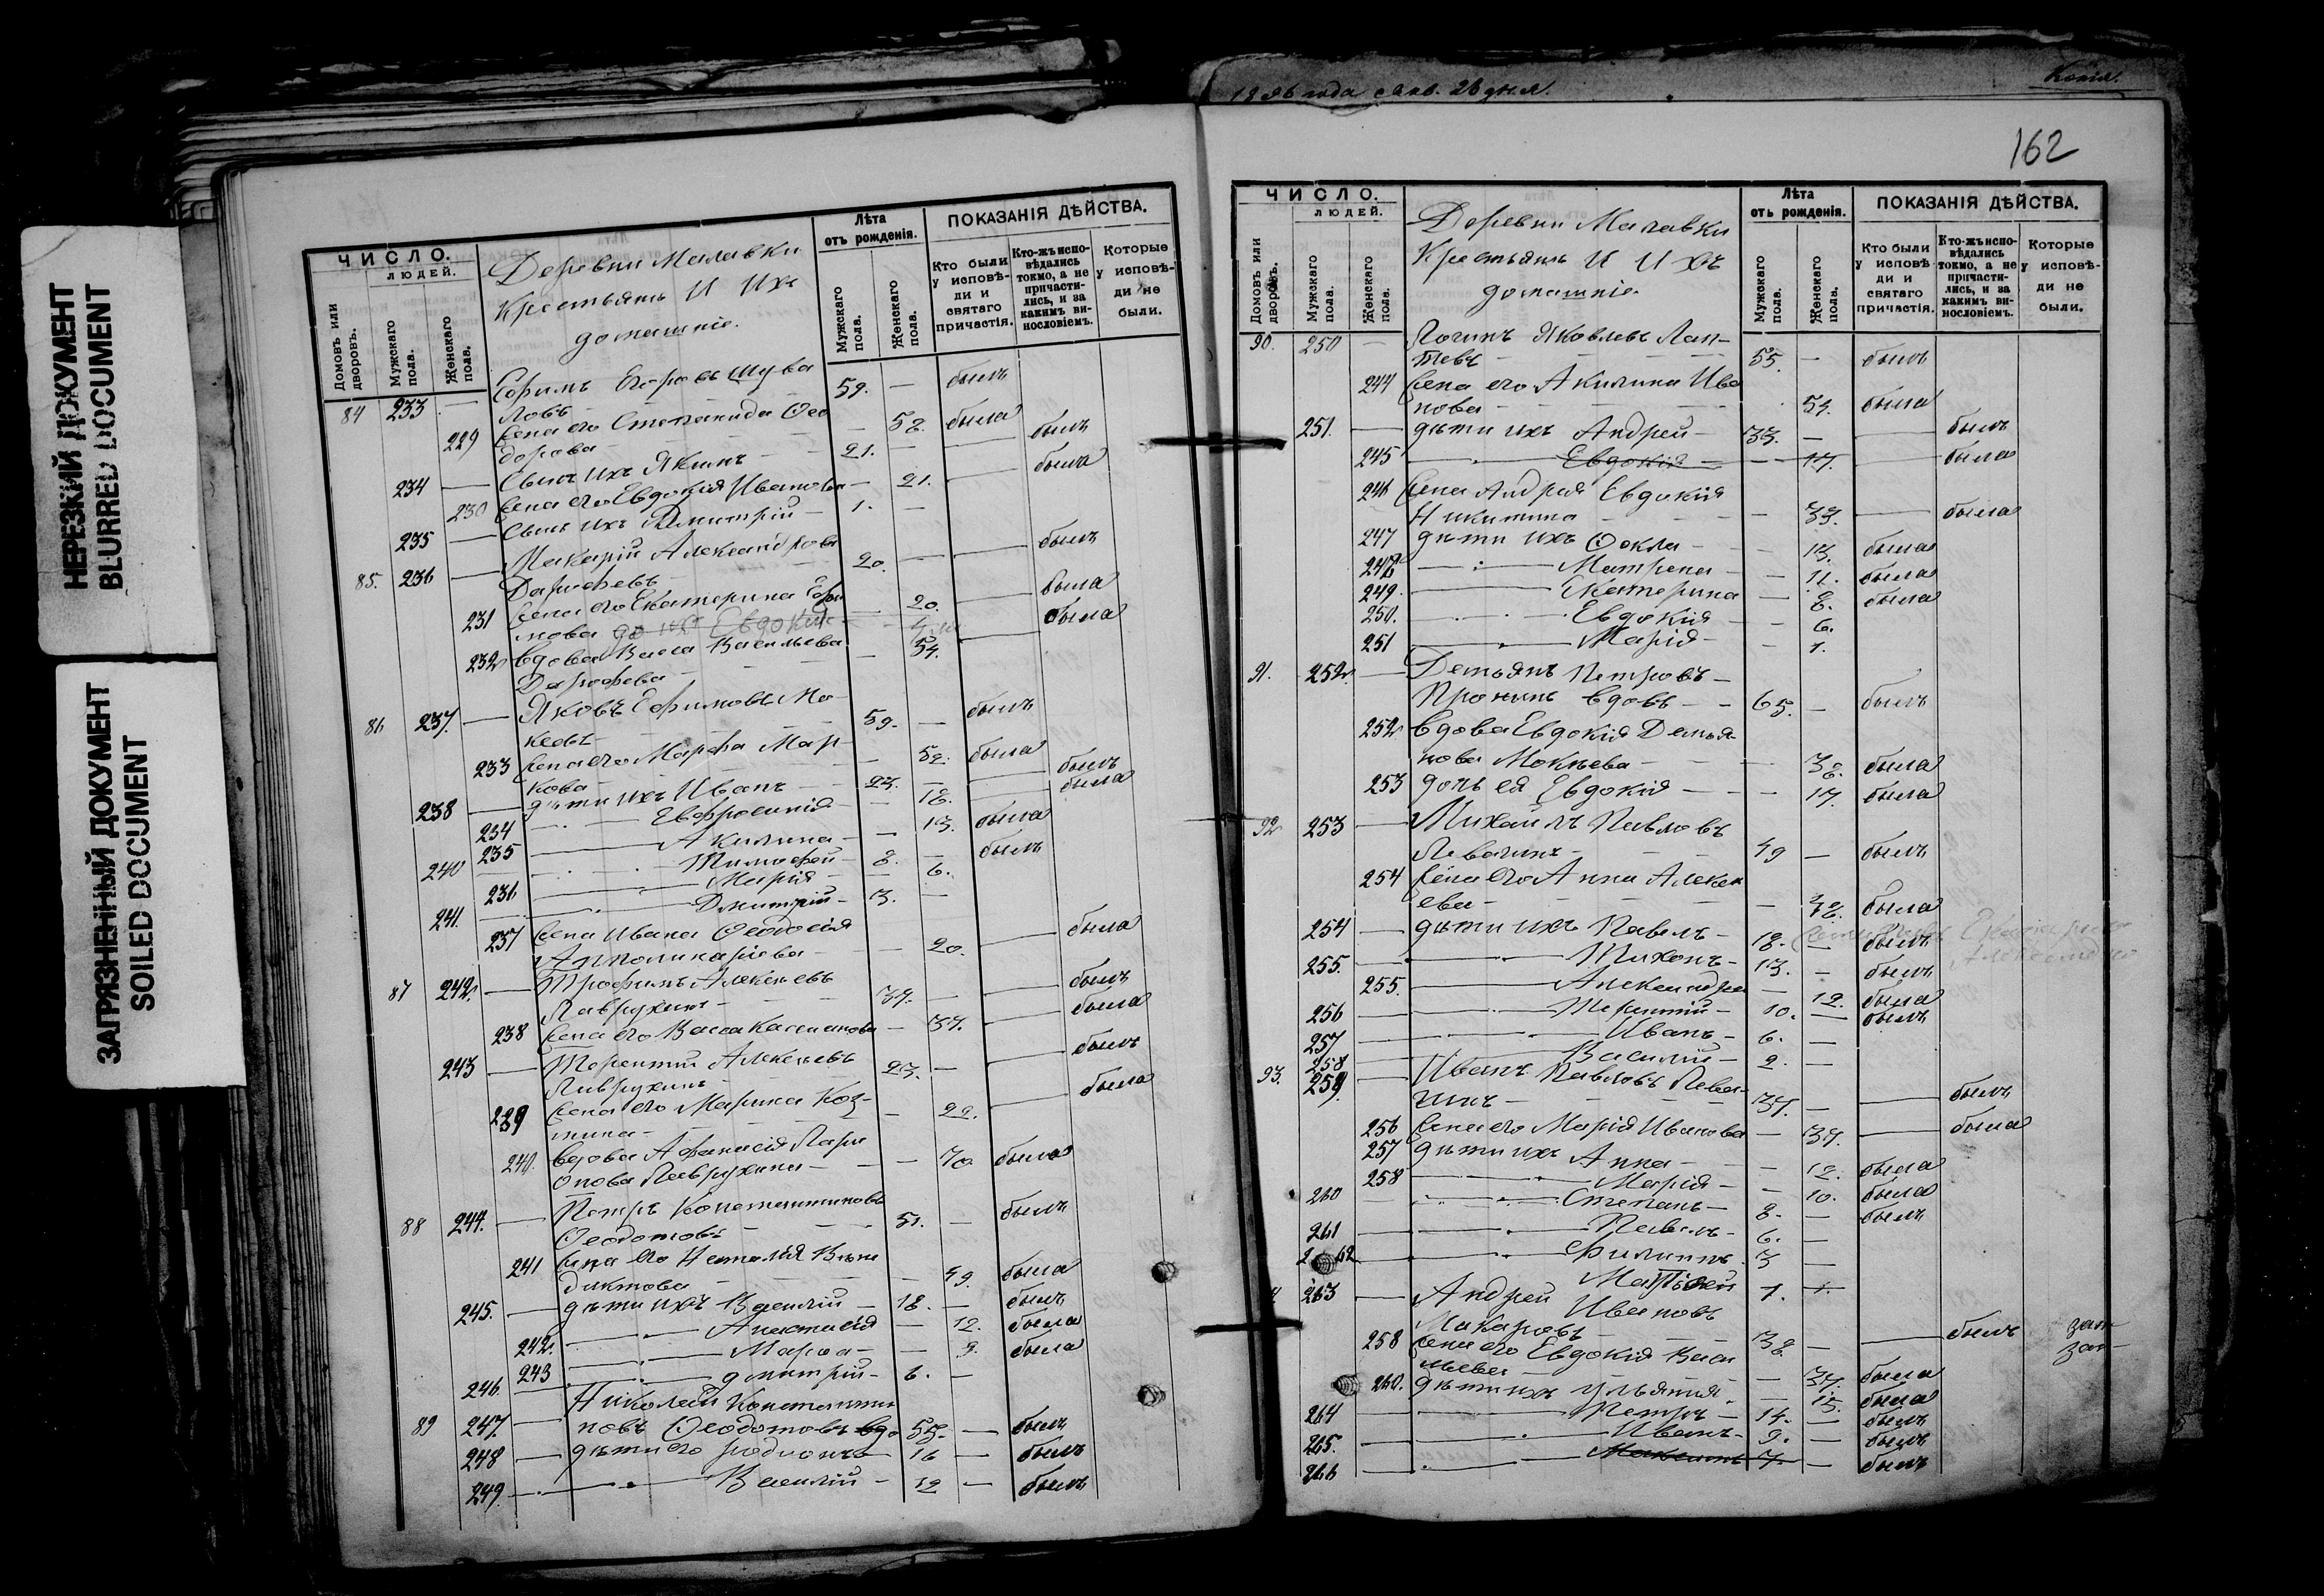 НЕРЕЗКИЙ ДОКУМЕНТ
BLURRED DOCUMENT
ЗАГРЯЗНЕННЫЙ ДОКУМЕНТ
SOILED DOCUMENT
ЧИСЛО.
ЛЮДЕЙ.
Домовъ или дворовъ.
Мужскаго пола.
Женскаго пола.
Деревни Малавки
Крестьянъ и ихъ
домашніе.
Лѣта
отъ рожденія.
Мужскаго пола.
Женскаго пола.
ПОКАЗАНІЯ ДѢЙСТВА.
Кто были у исповѣди и святаго причастія.
Кто-жъ исповѣдались токмо, а не причастились, и за какимъ винословіемъ.
Которые у исповѣди не были.
84 233 — Ефимъ Егоровъ Шува
ловъ 59. — былъ
229 Жена его Степанида Ѳео
дорова — 58. была
234 — Сынъ ихъ Якимъ 21. — былъ
230 Жена его Евдокія Иванова — 21. была
235 — Сынъ ихъ Димитрій 1. —
85. 236 — Макарій Александровъ
20. — былъ
231 Жена его Екатерина Ефи
мова 20. была
Евдокія
232 Вдова Васса Васильева
54. была
86 237. — Яковъ Ефимовъ Мо
кеевъ 59. — былъ
233 Жена его Марфа Мар
кова — 52. была
238 — дѣти ихъ Иванъ 23. — былъ
234 Евфросинія — 18. была
235 Акилина — 13. была
240 Тимофей 8. — былъ
236 Марія — 6.
241. Дмитрій 3. —
237 Жена Ивана Ѳеодосія
Апполинаріева — 20. была
87 242. — Трофимъ Алексѣевъ
Лаврухинъ 39. — былъ
238 Жена его Васса Касьянова — 37. была
243 — Терентій Алексѣевъ
Лаврухинъ 23. — былъ
239 Жена его Марина Коз
мина — 22. была
240. Вдова Афанасія Лари
онова Лаврухина — 70. была
88 244. — Петръ Константиновъ
Ѳеодотовъ 51. — былъ
241 Жена его Наталія Вене
диктова — 49. была
245. — дѣти ихъ Василій 18. — былъ
242. Анастасія — 12. была
243 Марѳа — 9. была
246 Дмитрій 6. —
89 247. — Николай Константи
новъ Ѳеодотовъ вдо 55. — былъ
248 — дѣти его Родионъ 16 — былъ
249. Василій 12 — былъ
1896 года янв. 26 дня.
Копія.
162
ЧИСЛО.
ЛЮДЕЙ.
Домовъ или дворовъ.
Мужскаго пола.
Женскаго пола.
Деревни Малавки
Крестьянъ и ихъ
домашніе.
Лѣта
отъ рожденія.
Мужскаго пола.
Женскаго пола.
ПОКАЗАНІЯ ДѢЙСТВА.
Кто были у исповѣди и святаго причастія.
Кто-жъ исповѣдались токмо, а не причастились, и за какимъ винословіемъ.
Которые у исповѣди не были.
90. 250 — Логинъ Яковлевъ Лап
тевъ 55. — былъ
244 Жена его Акилина Ива
нова 54. была
251. — дѣти ихъ Андрей 33. — былъ
245 Евдокія — 17. была
246 Жена Андрея Евдокія
Никитина — 33. была
247 дѣти ихъ Ѳекла — 13. была
248 Матрена — 11. была
249. Екатерина — 8. была
250. Евдокія — 6.
251 Марія — 1.
91. 252. — Демьянъ Петровъ
Пронинъ вдовъ 65. — былъ
252 Вдова Евдокія Демья
нова Мокѣева 38. была
253 дочь ея Евдокія — 17. была
92 253 — Михаилъ Павловъ
Левагинъ 49 — былъ
254 Жена его Анна Алексѣ
ева — 48. была
254 — дѣти ихъ Павелъ 18. — былъ
255. Тихонъ 13. — былъ
255. Александра — 12. была
256 Терентій 10. — былъ
257 Иванъ 6. —
258 Василій 2. —
93. 259. — Иванъ Павловъ Лева
гинъ 37. — былъ
256 Жена его Марія Иванова — 37. была
257 дѣти ихъ Анна — 12. была
258 Марія — 10. была
260 Степанъ 8. — былъ
261 Павелъ 6. —
262 Филиппъ 3 —
Матѳей 1.
263 — Андрей Ивановъ
Макаровъ 38. — былъ
258 Жена его Евдокія Васи
льева — 37. была
260. дѣти ихъ Ульянія — 15. была
264 Петръ 14. — былъ
265. Иванъ 9. — былъ
266 Максимъ 7. — былъ